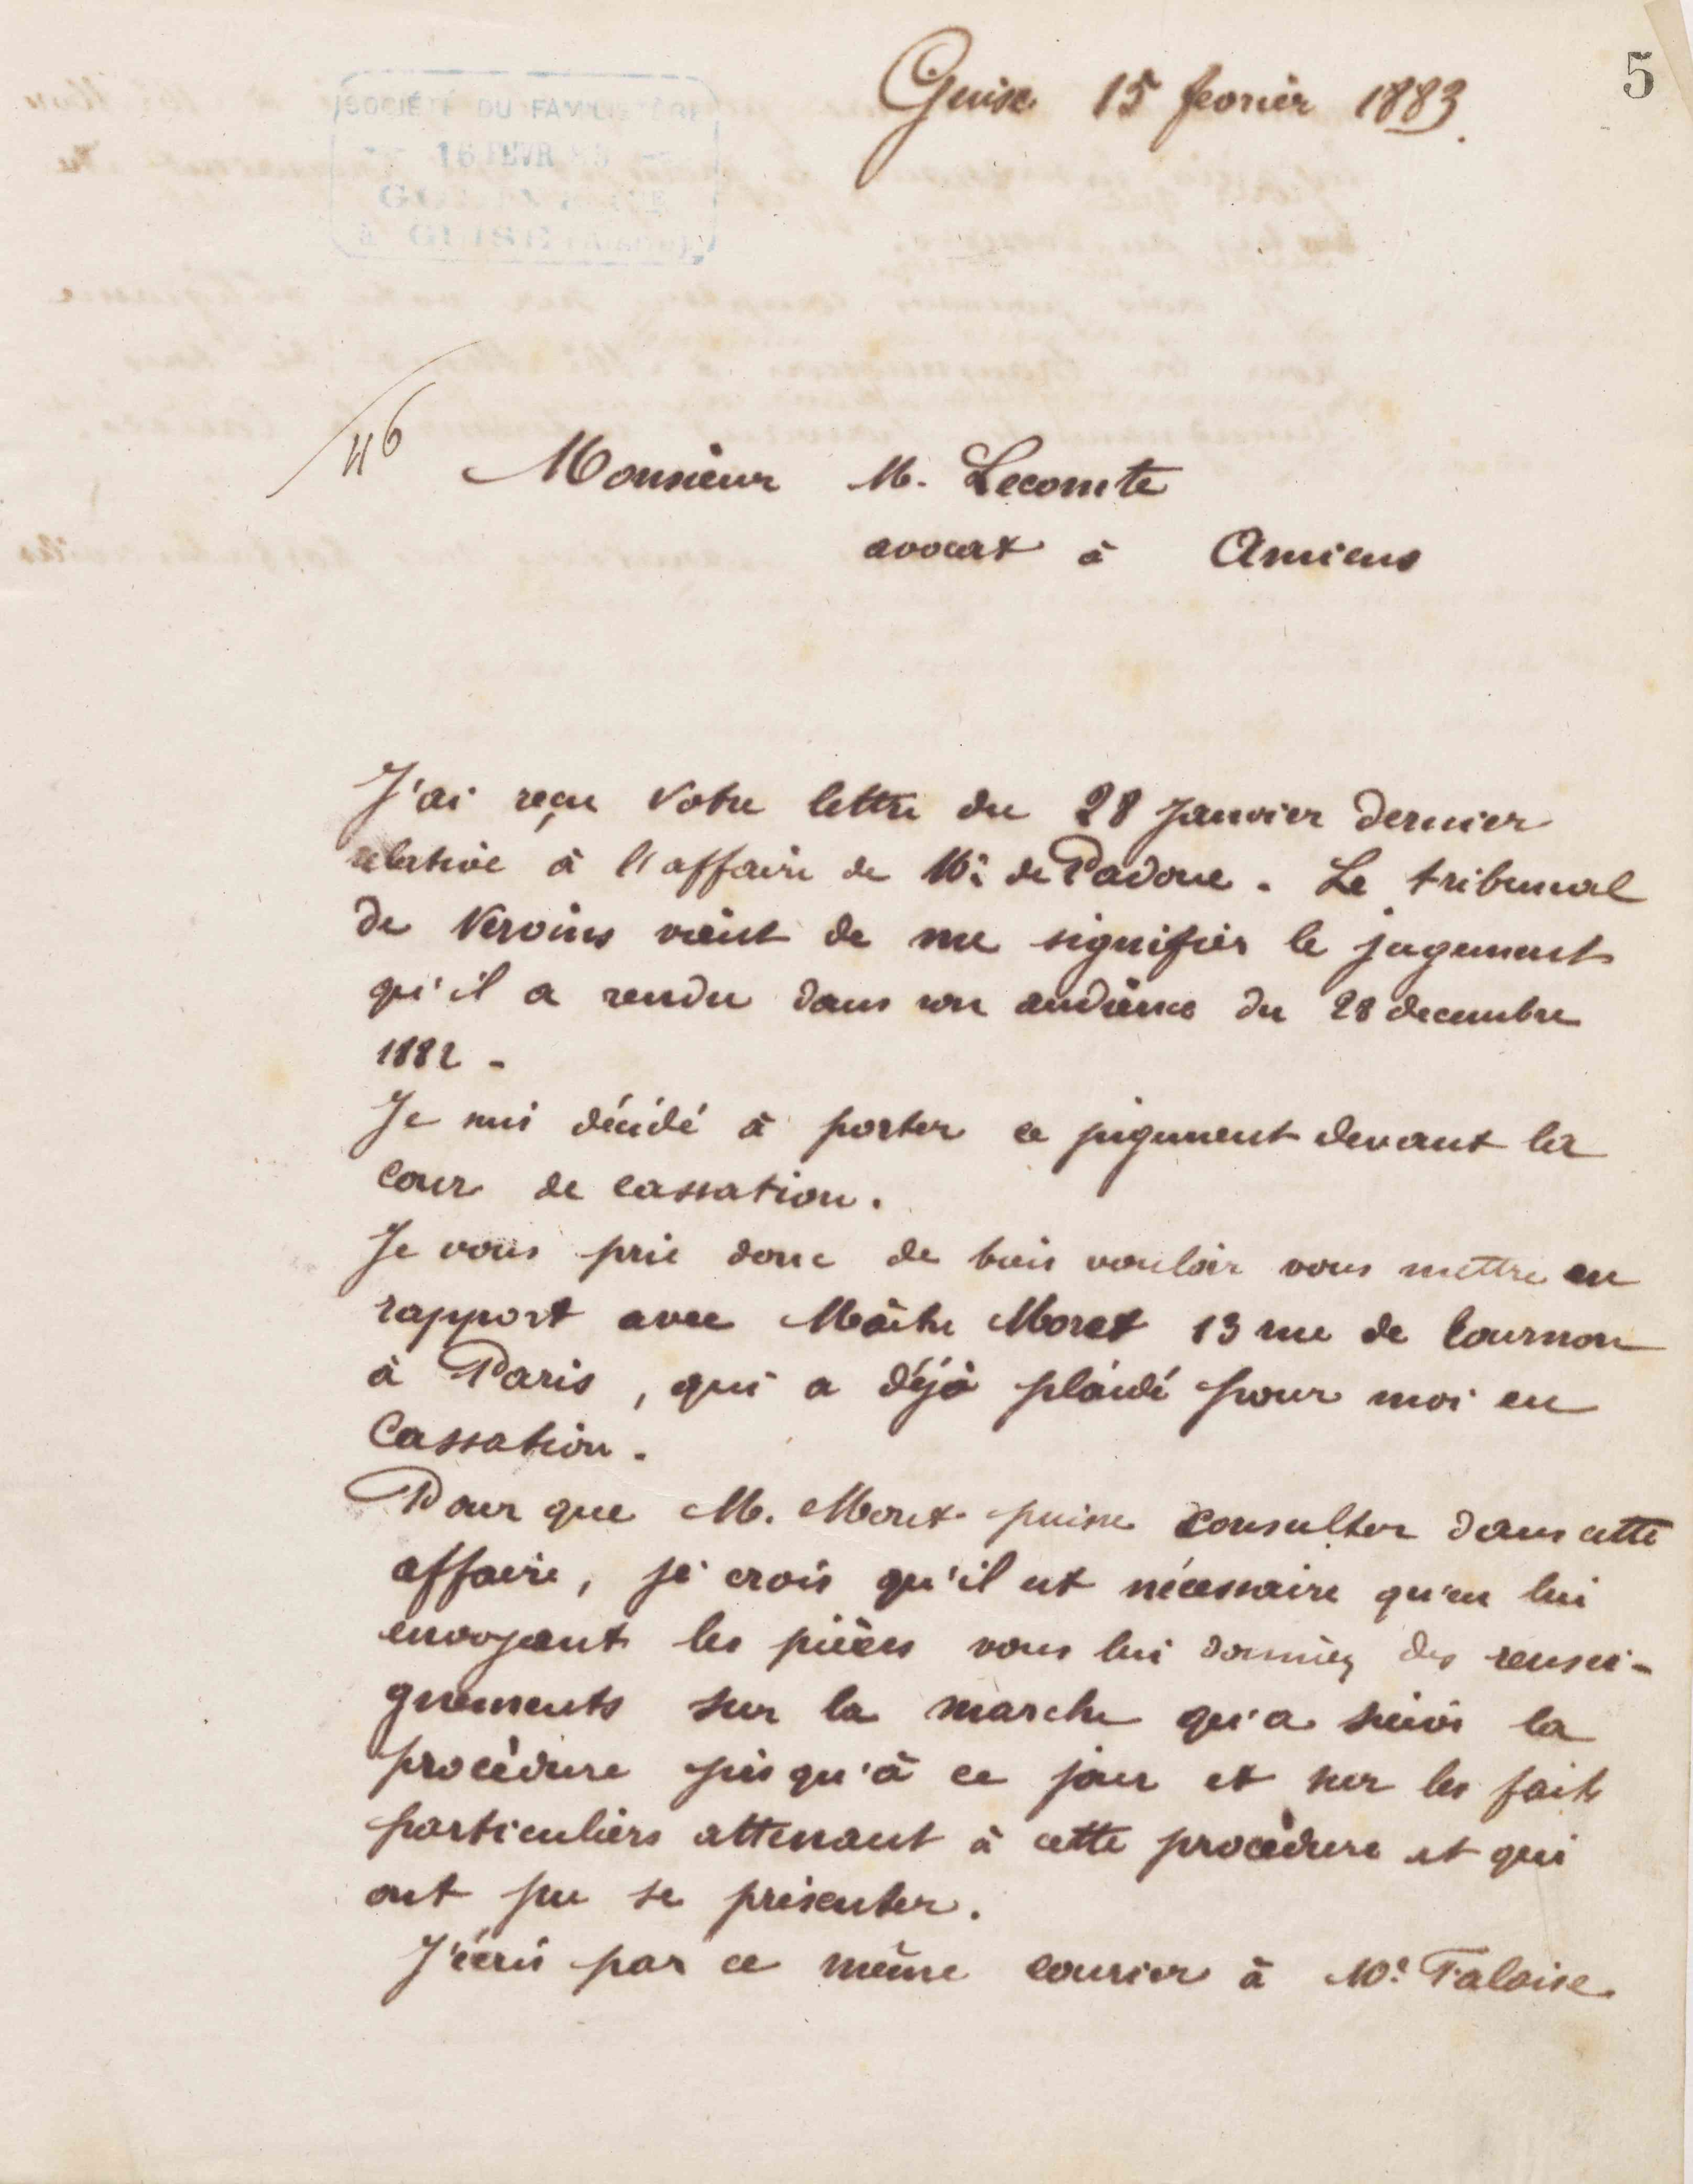 5
Guise 15 fevrier 1883.
SOCIÉTÉ DU FAMILISTÈRE
16 FEVR 83
à GUISE (Aisne)
46
Monsieur M. Lecomte
avocat à Amiens
J'ai reçu votre lettre du 28 Janvier dernier
relative à l'affaire de Mr de Padoue. Le tribunal
de Vervins vient de me signifier le jugement
qu'il a rendu dans son audience du 28 decembre
1882 -
Je suis décidé à porter ce jugement devant la
cour de cassation.
Je vous prie donc de bien vouloir vous mettre en
rapport avec Maître Moret 13 rue de Tournon
à Paris, qui a déjà plaidé pour moi en
Cassation.
Pour que M. Moret puisse consulter dans cette
affaire, je crois qu'il est nécessaire qu'en lui
envoyant les pièces vous lui donniez des rensei-
gnements sur la marche qu'a suivi la
procédure jusqu'à ce jour et sur les faits
particuliers attenant à cette procédure et qui
ont pu se présenter.
J'écris par ce même courier à Mr Falaise